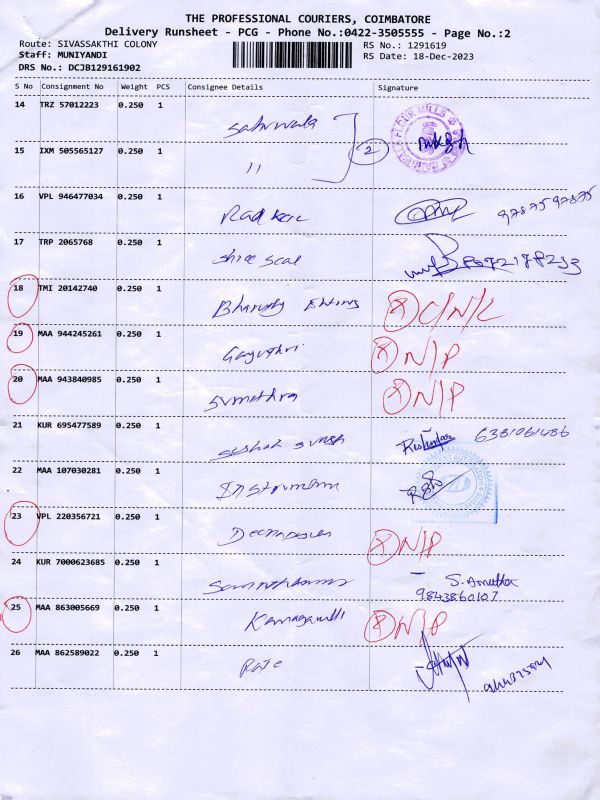 THE PROFESSIONAL COURIERS, COIMBATORE
Delivery Runsheet - PCG - Phone No.:0422-3505555 - Page No.:2
Route: SIVASSAKTHI COLONY RS No.: 1291619
Staff: MUNIYANDI RS Date: 18-Dec-2023
DRS No.: DCJB129161902
S No Consignment No Weight PCS Consignee Details Signature
14 TRZ 57012223 0.250 1
2
15 IXM 505565127 0.250 1 11
16 VPL 946477034 0.250 1 9787597875
17 TRP 2065768 0.250 1 shree seal
18 TMI 20142740 0.250 1 X C/N/L
19 MAA 944245261 0.250 1 Gayathri X N/P
20 MAA 943840985 0.250 1 sumithra X N/P
21 KUR 695477589 0.250 1 6381061486
22 MAA 107030281 0.250 1
23 VPL 220356721 0.250 1 X N/P
24 KUR 7000623685 0.250 1 S. Amutha
9843860107
25 MAA 863005669 0.250 1 X N/P
26 MAA 862589022 0.250 1